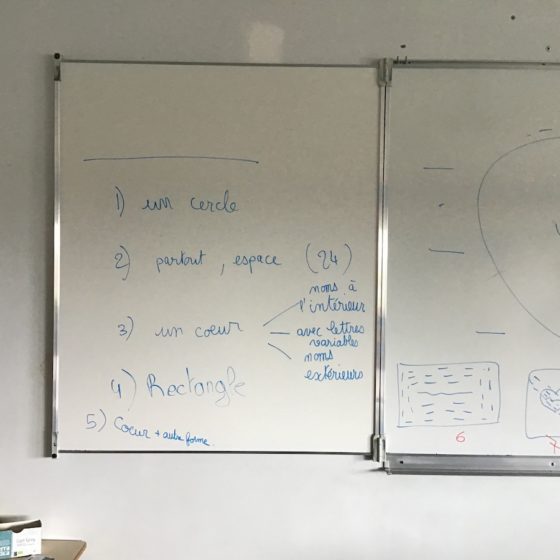 1) un cercle
2) partout, espace (24)
3) un coeur
noms à
l'intérieur
avec lettres
variables
noms
extérieurs
4) Rectangle
5) Coeur + autre forme.
6